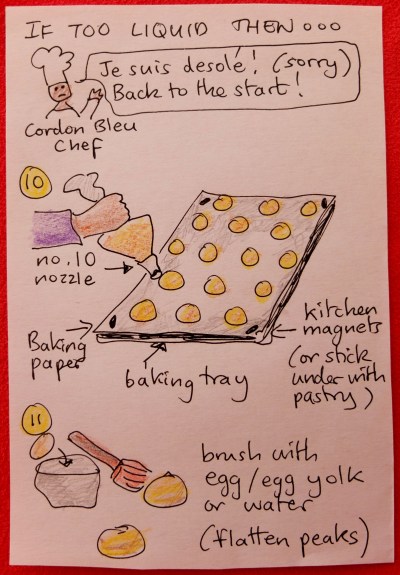 IF TOO LIQUID THEN ooo
Je suis desolé! (sorry)
Back to the start!
Cordon Bleu
Chef
10
no. 10
nozzle
Baking
paper
baking tray
kitchen
magnets
(or stick
under with
pastry)
11
brush with
egg/egg yolk
or water
(flatten peaks)